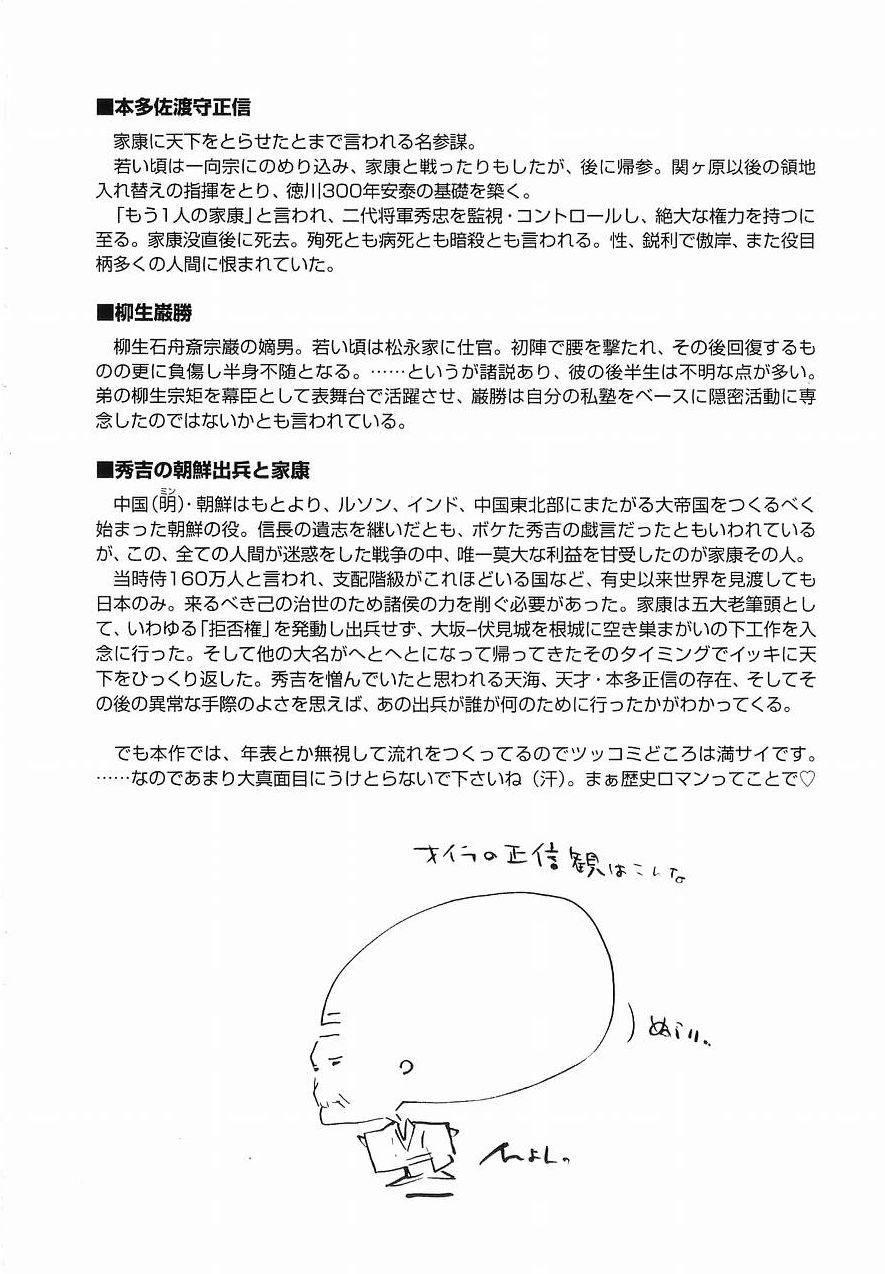 ■本多佐渡守正信
家康に天下をとらせたとまで言われる名参謀。
若い頃は一向宗にのめり込み、家康と戦ったりもしたが、後に帰参。関ヶ原以後の領地
入れ替えの指揮をとり、徳川300年安泰の基礎を築く。
「もう1人の家康」と言われ、二代将軍秀忠を監視・コントロールし、絶大な権力を持つに
至る。家康没直後に死去。殉死とも病死とも暗殺とも言われる。性、鋭利で傲岸、また役目
柄多くの人間に恨まれていた。
■柳生巌勝
柳生石舟斎宗厳の嫡男。若い頃は松永家に仕官。初陣で腰を撃たれ、その後回復するも
のの更に負傷し半身不随となる。……というが諸説あり、彼の後半生は不明な点が多い。
弟の柳生宗矩を幕臣として表舞台で活躍させ、巌勝は自分の私塾をベースに隠密活動に専
念したのではないかとも言われている。
■秀吉の朝鮮出兵と家康
ミン
中国（明）・朝鮮はもとより、ルソン、インド、中国東北部にまたがる大帝国をつくるべく
始まった朝鮮の役。信長の遺志を継いだとも、ボケた秀吉の戯言だったともいわれている
が、この、全ての人間が迷惑をした戦争の中、唯一莫大な利益を甘受したのが家康その人。
当時侍160万人と言われ、支配階級がこれほどいる国など、有史以来世界を見渡しても
日本のみ。来るべき己の治世のため諸侯の力を削ぐ必要があった。家康は五大老筆頭とし
て、いわゆる「拒否権」を発動し出兵せず、大坂−伏見城を根城に空き巣まがいの下工作を入
念に行った。そして他の大名がへとへとになって帰ってきたそのタイミングでイッキに天
下をひっくり返した。秀吉を憎んでいたと思われる天海、天才・本多正信の存在、そしてそ
の後の異常な手際のよさを思えば、あの出兵が誰が何のために行ったかがわかってくる。
でも本作では、年表とか無視して流れをつくってるのでツッコミどころは満サイです。
……なのであまり大真面目にうけとらないで下さいね（汗）。まぁ歴史ロマンってことで♡
オイラの正信観はこしな。